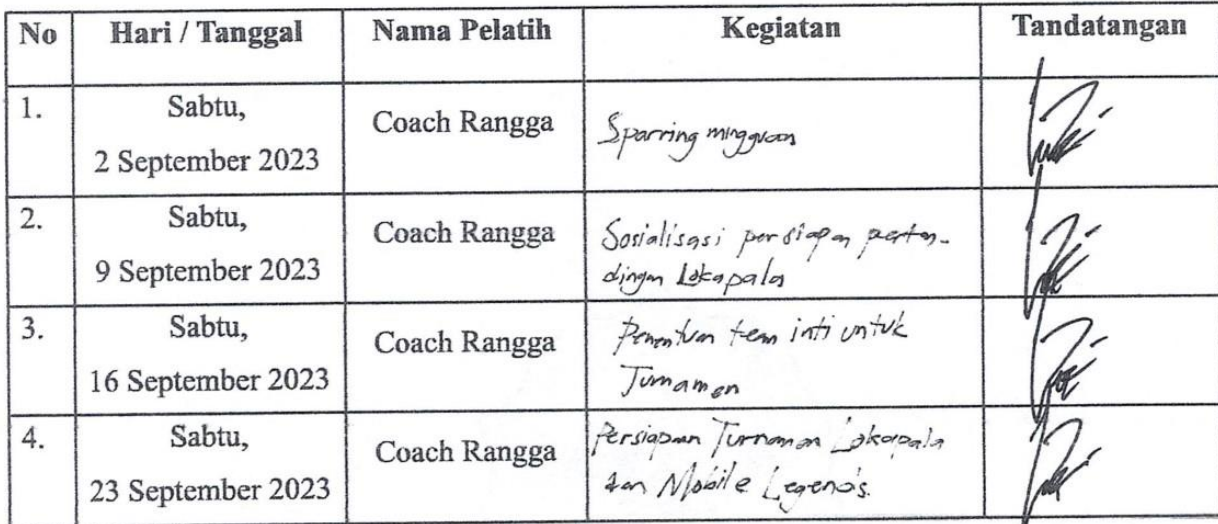 No Hari / Tanggal Nama Pelatih Kegiatan Tandatangan
1. Sabtu,
2 September 2023 Coach Rangga Sparring mingguan
2. Sabtu,
9 September 2023 Coach Rangga Sosialisasi persiapan pertan-
dingan Lokapala
3. Sabtu,
16 September 2023 Coach Rangga Penentuan team inti untuk
Turnamen
4. Sabtu,
23 September 2023 Coach Rangga Persiapan Turnamen Lokapala
dan Mobile Legends.